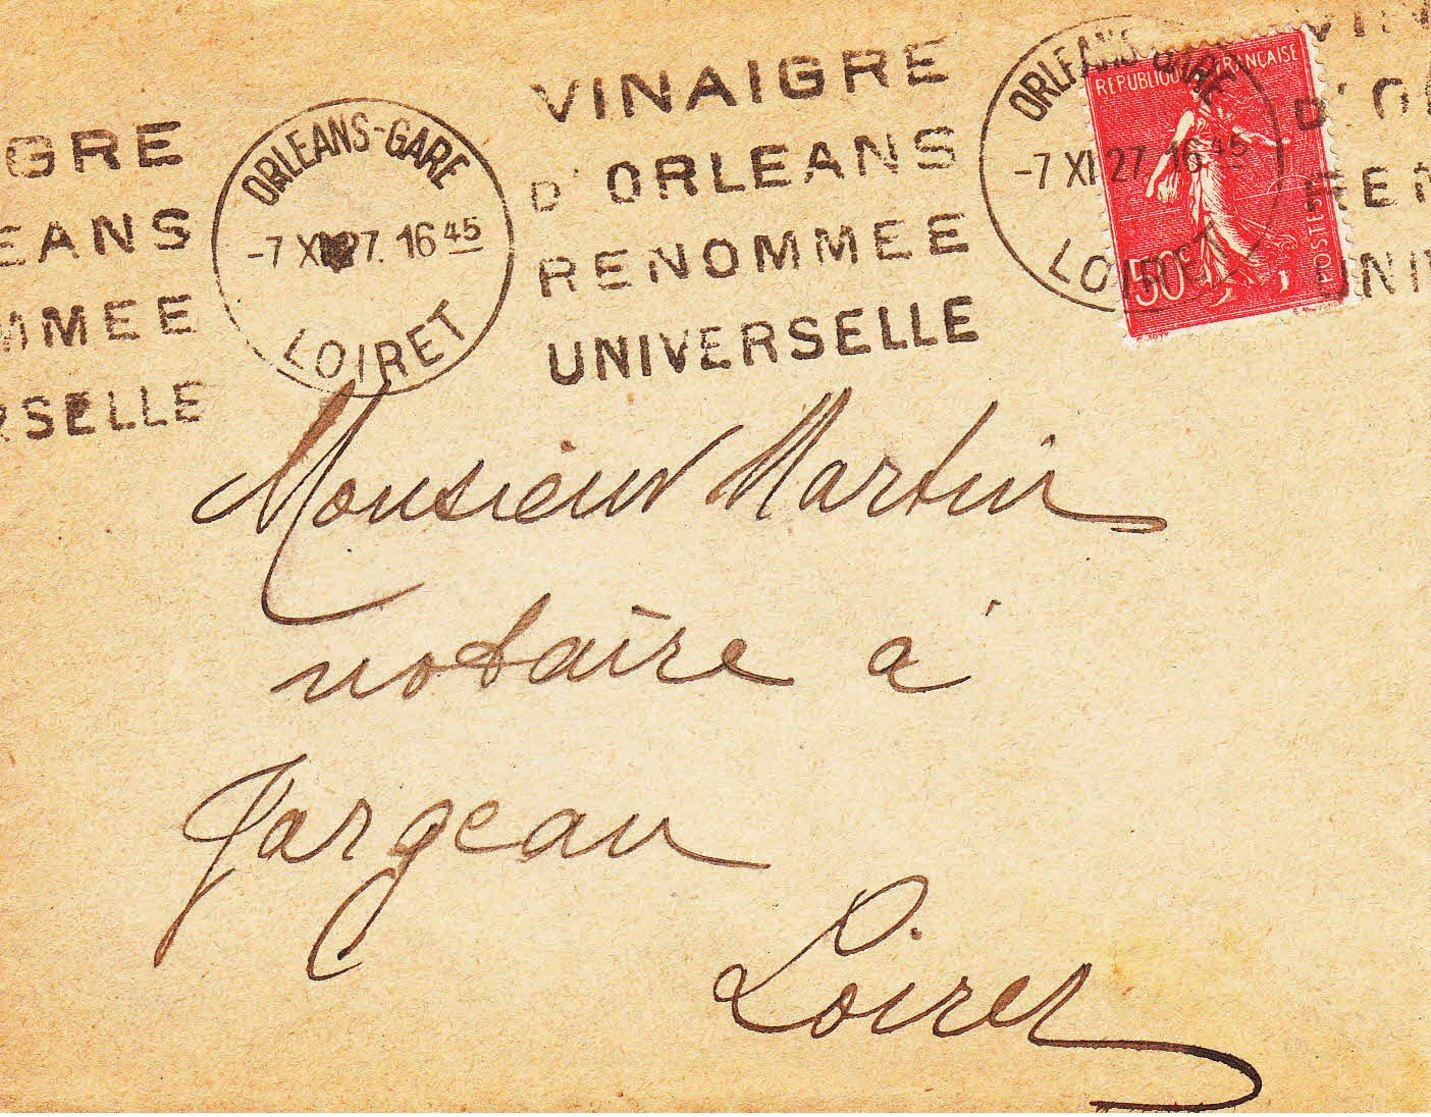 GRE
EANS
MMEE
RSELLE
ORLEANS-GARE
-7 XI 27. 16 45
LOIRET
VINAIGRE
D'ORLEANS
RENOMMEE
UNIVERSELLE
ORLEANS-GARE
-7 XI 27. 16 45
LOIRET
REPUBLIQUE FRANÇAISE
50c
POSTES
VIN
D'O
REN
UNIV
Monsieur Martin
notaire à
Jargeau
Loiret